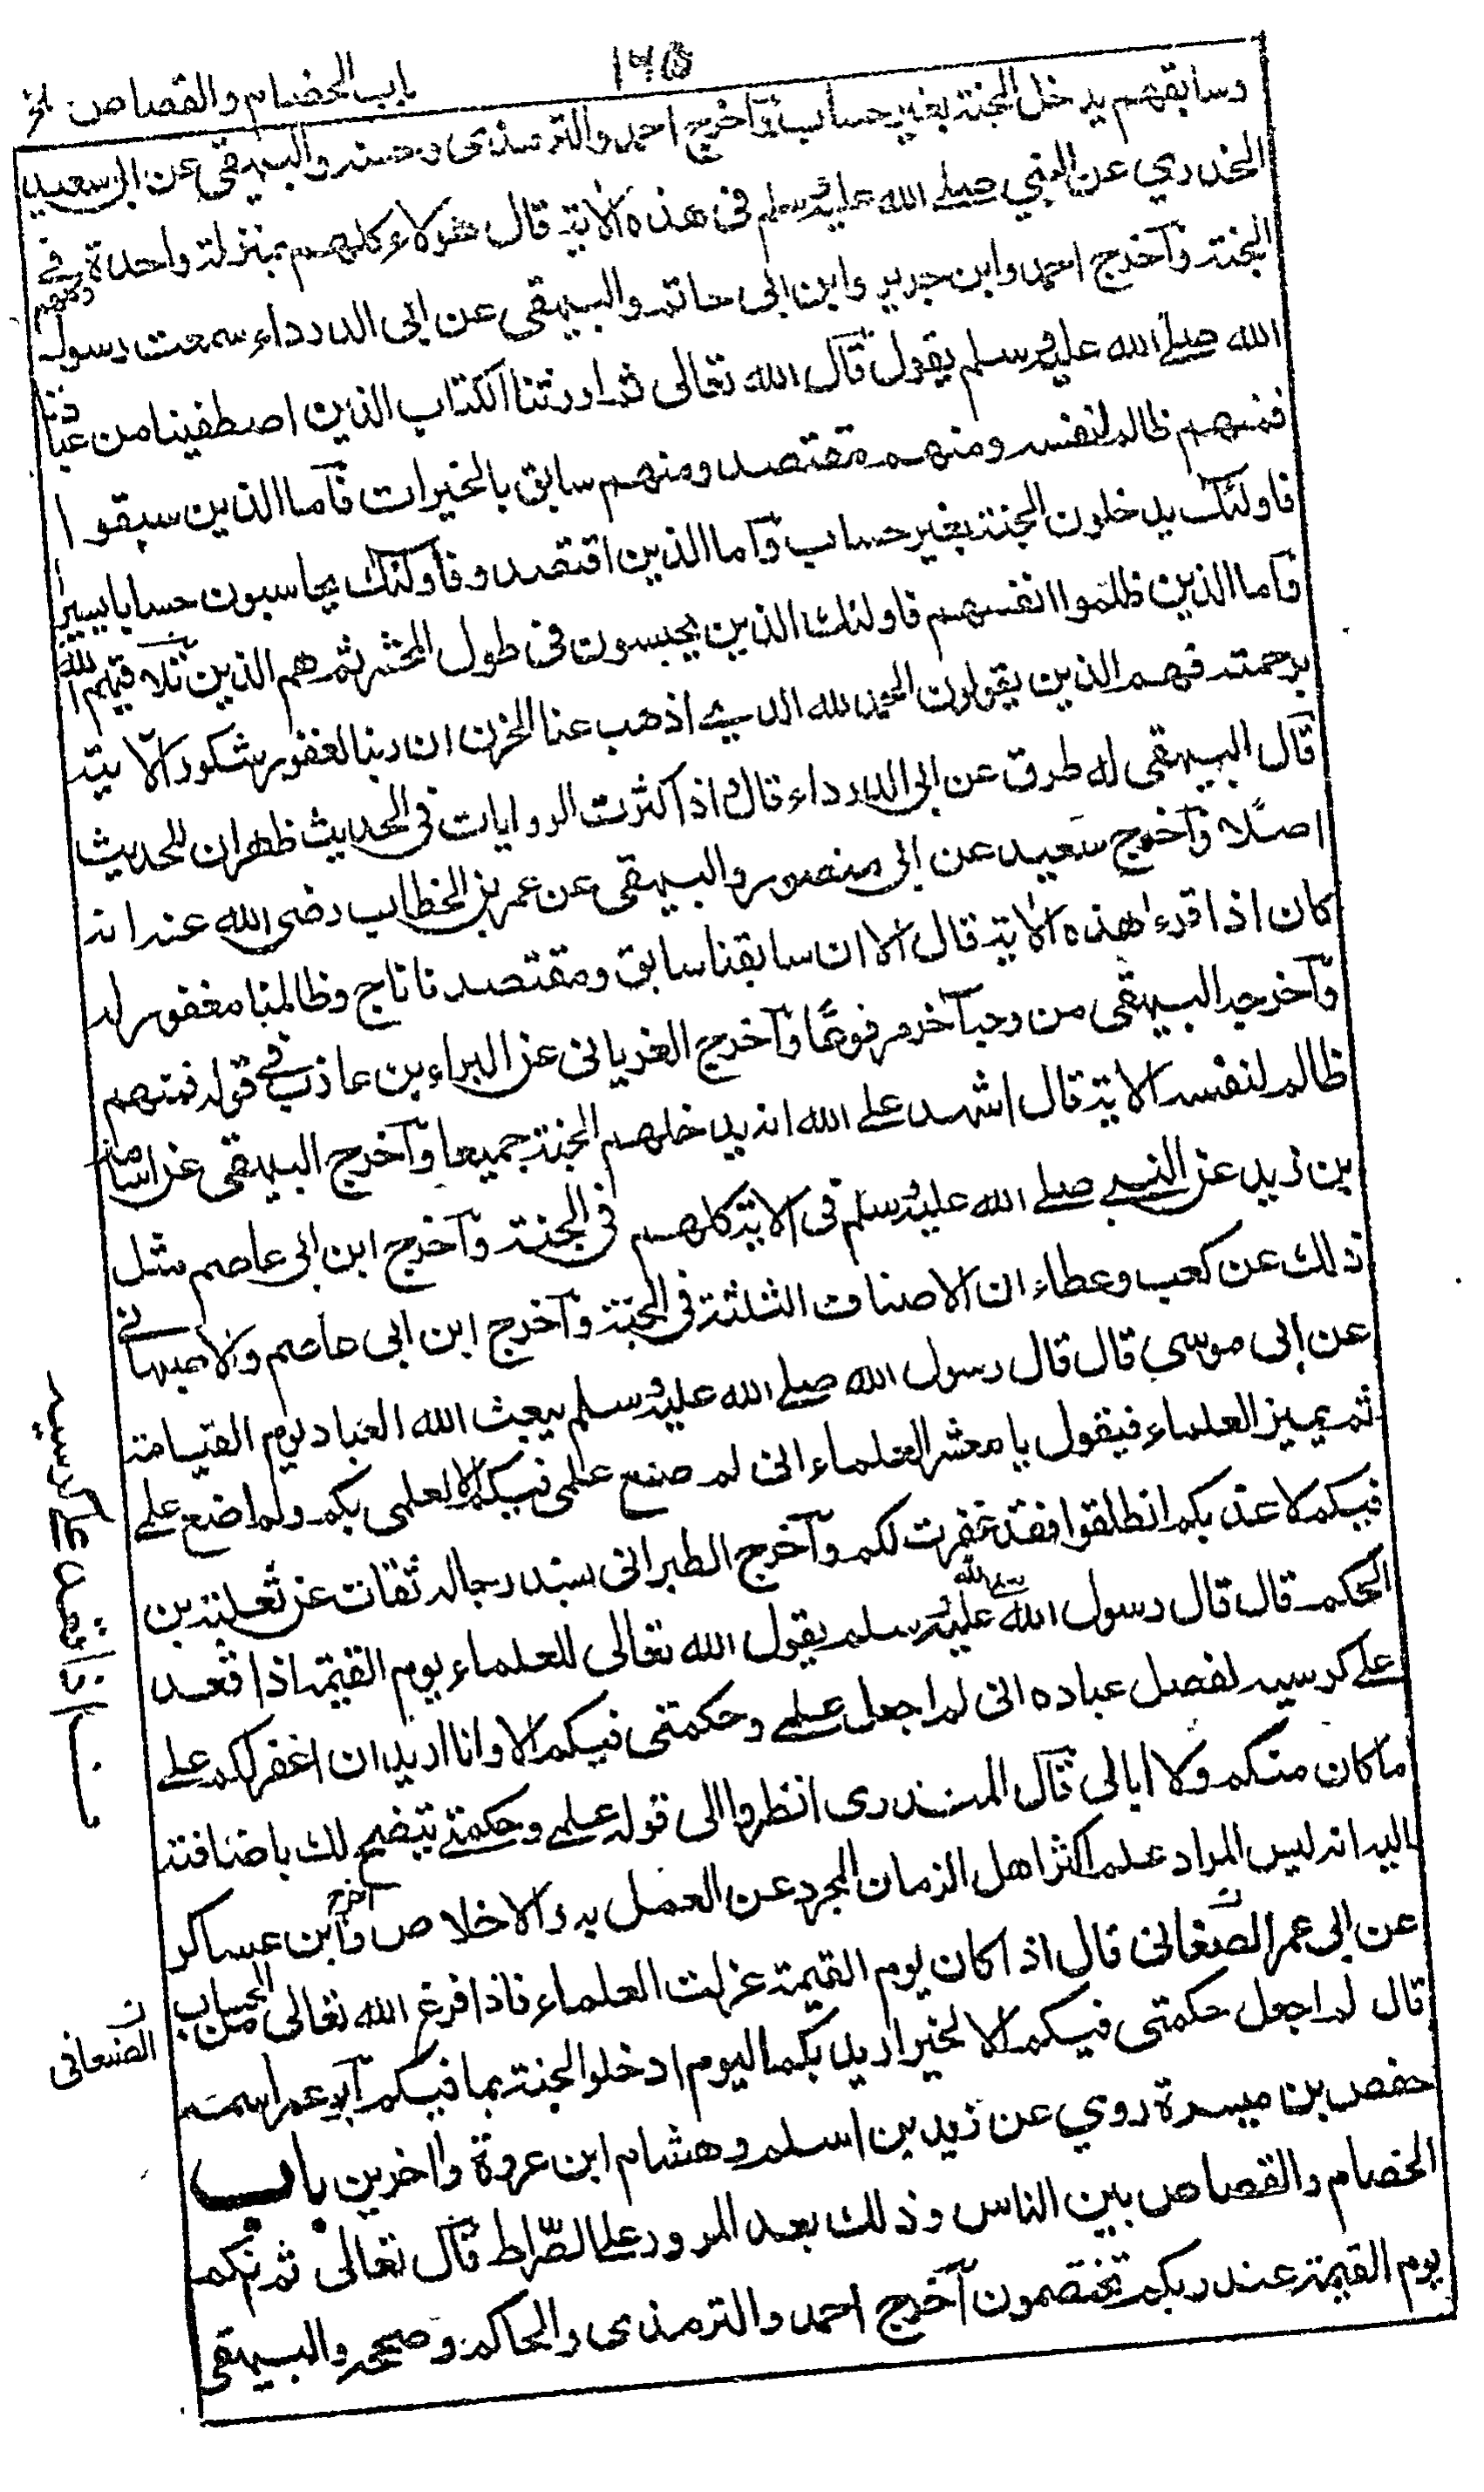 ١٦٥
باب الخصام والقصاص الخ
وسابقهم يدخل الجنة بغير حساب وآخرج احمد والترمذى وحسنه والبيهقى عن ابى سعيد
الخدري عن النبي صلے الله عليه وسلم فى هذه الاية قال هؤلاء كلهم بمنزلة واحدة وكلهم فے
الجنة وآخرج احمد وابن جرير وابن ابى حاتم والبيهقى عن ابى الدرداء سمعت رسول
الله صلے الله عليه وسلم يقول قال الله تعالى ثم اورثنا الكتاب الذين اصطفينا من عبادنا
فمنهم ظالم لنفسه ومنهم مقتصد ومنهم سابق بالخيرات فآما الذين سبقوا
فاولئك يدخلون الجنة بغير حساب وآما الذين اقتصدوا فاولئك يحاسبون حسابا يسيرا
وآما الذين ظلموا انفسهم فاولئك الذين يحبسون فى طول المحشر ثم هم الذين تلافيهم الله
برحمته فهم الذين يقولون الحمد لله الذي اذهب عنا الحزن ان ربنا لغفور شكور الآية
قال البيهقى له طرق عن ابى الدرداء قال واذا كثرت الروايات فى الحديث ظهر ان للحديث
اصلا وآخرج سعيد عن ابى منصور والبيهقى عن عمر بن الخطاب رضى الله عنه انه
كان اذا قرء هذه الاية قال الا ان سابقنا سابق ومقتصدنا ناج وظالمنا مغفور له
وآخرجه البيهقى من وجه آخر مرفوعا وآخرج الفريانى عن البراء بن عاذب فے قوله فمنهم
ظالم لنفسه الاية قال اشهد علے الله انه يدخلهم الجنة جميعا وآخرج البيهقى عن اسامة
بن زيد عن النبے صلے الله عليه وسلم فى الاية كلهم فى الجنة وآخرج ابن ابى عاصم مثل
ذلك عن كعب وعطاء ان الاصناف الثلثة فى الجنة وآخرج ابن ابى عاصم والاصبهانے
عن ابى موسي قال قال رسول الله صلے الله عليه وسلم يبعث الله العباد يوم القيامة
ثم يميز العلماء فيقول يا معشر العلماء انى لم صنع علمى فيكم الا لعلمى بكم ولم اضع علمے
فيكم لا عذبكم انطلقوا فقد غفرت لكم وآخرج الطبرانى بسند رجاله ثقات عن ثعلبة بن
الحكم قال قال رسول الله صلے الله عليه وسلم يقول الله تعالى للعلماء يوم القيمة اذا قعد
علے كرسيه لفصل عباده انى لم اجعل علمے وحكمتى فيكم الا وانا اريد ان اغفر لكم علے
ما كان منكم ولا ابالى قال المنذرى انظروا الى قوله علمے وحكمتے يتضح لك باضافته
اليه انه ليس المراد علم اكثر اهل الزمان المجرد عن العمل به والاخلاص وآخرج ابن عساكر
عن ابى عمر الصنغانى قال اذا كان يوم القيمة عزلت العلماء فاذا فرغ الله تعالى من الحساب
قال لم اجعل حكمتى فيكم الا لخير اريد بكم اليوم ادخلوا الجنة بما فيكم آبو عمر اسمه
حفص بن ميسرة روي عن زيد بن اسلم وهشام ابن عروة واخرين باب
الخصام والقصاص بين الناس وذلك بعد المرور علے الصراط قال تعالى ثم نكم
يوم القيمة عند ربكم تختصمون آخرج احمد والترمذى والحاكم وصححه والبيهقى
علے كرسيه
ن الصنعانى